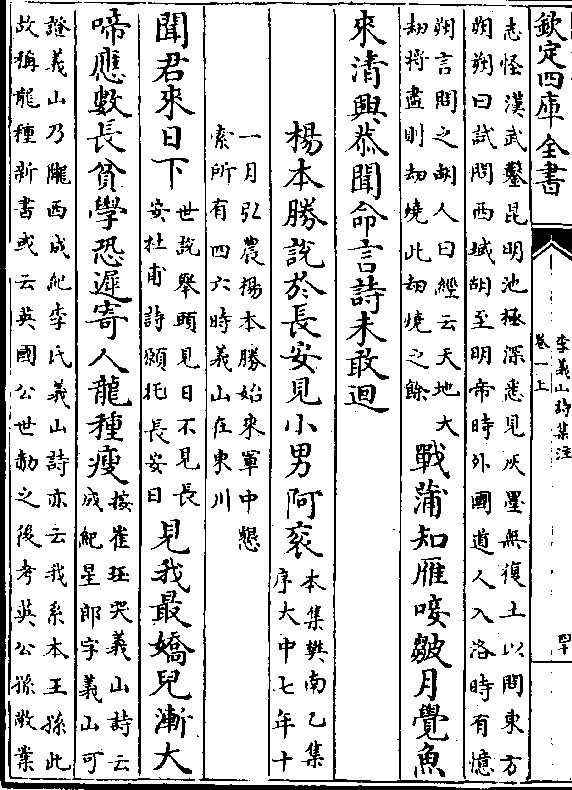 欽定四庫全書
李義山詩集注
卷一上
四十
志怪漢武鑿昆明池極深悉見灰墨無復土以問東方
朔朔曰試問西域胡至明帝時外國道人入洛時有憶
朔言問之胡人曰經云天地大
劫將盡則劫燒此劫燒之餘
戰蒲知雁唼皺月覺魚
來清興恭聞命言詩未敢迴
楊本勝說於長安見小男阿衮
本集樊南乙集
序大中七年十
一月引農楊本勝始來軍中懇
索所有四六時義山在東川
聞君來日下
世說舉頭見日不見長
安杜甫詩願托長安日
見我最嬌兒漸大
啼應數長貧學恐遲寄人龍種瘦
按崔珏哭義山詩云
成紀星郎字義山可
證義山乃隴西成紀李氏義山詩亦云我系本王孫此
故稱龍種新書或云英國公世勣之後考英公孫敬業